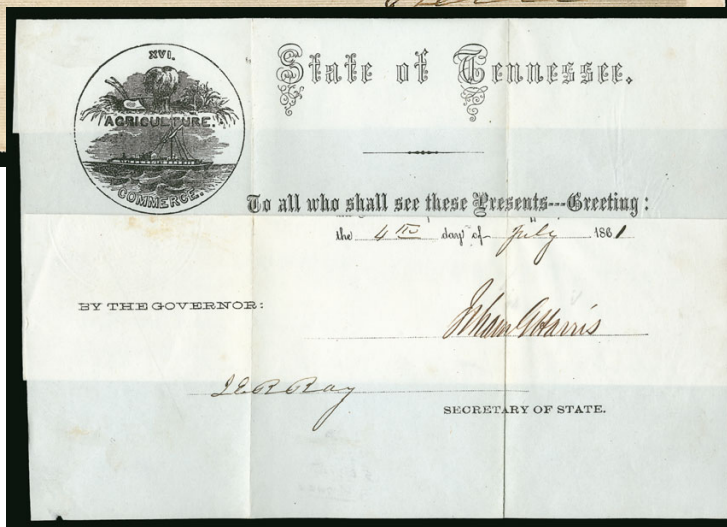 XVI.
AGRICULTURE.
COMMERCE.
State of Tennessee.
To all who shall see these Presents---Greeting:
the 4th day of July 1861
BY THE GOVERNOR:
Isham G Harris
J E R Ray
SECRETARY OF STATE.